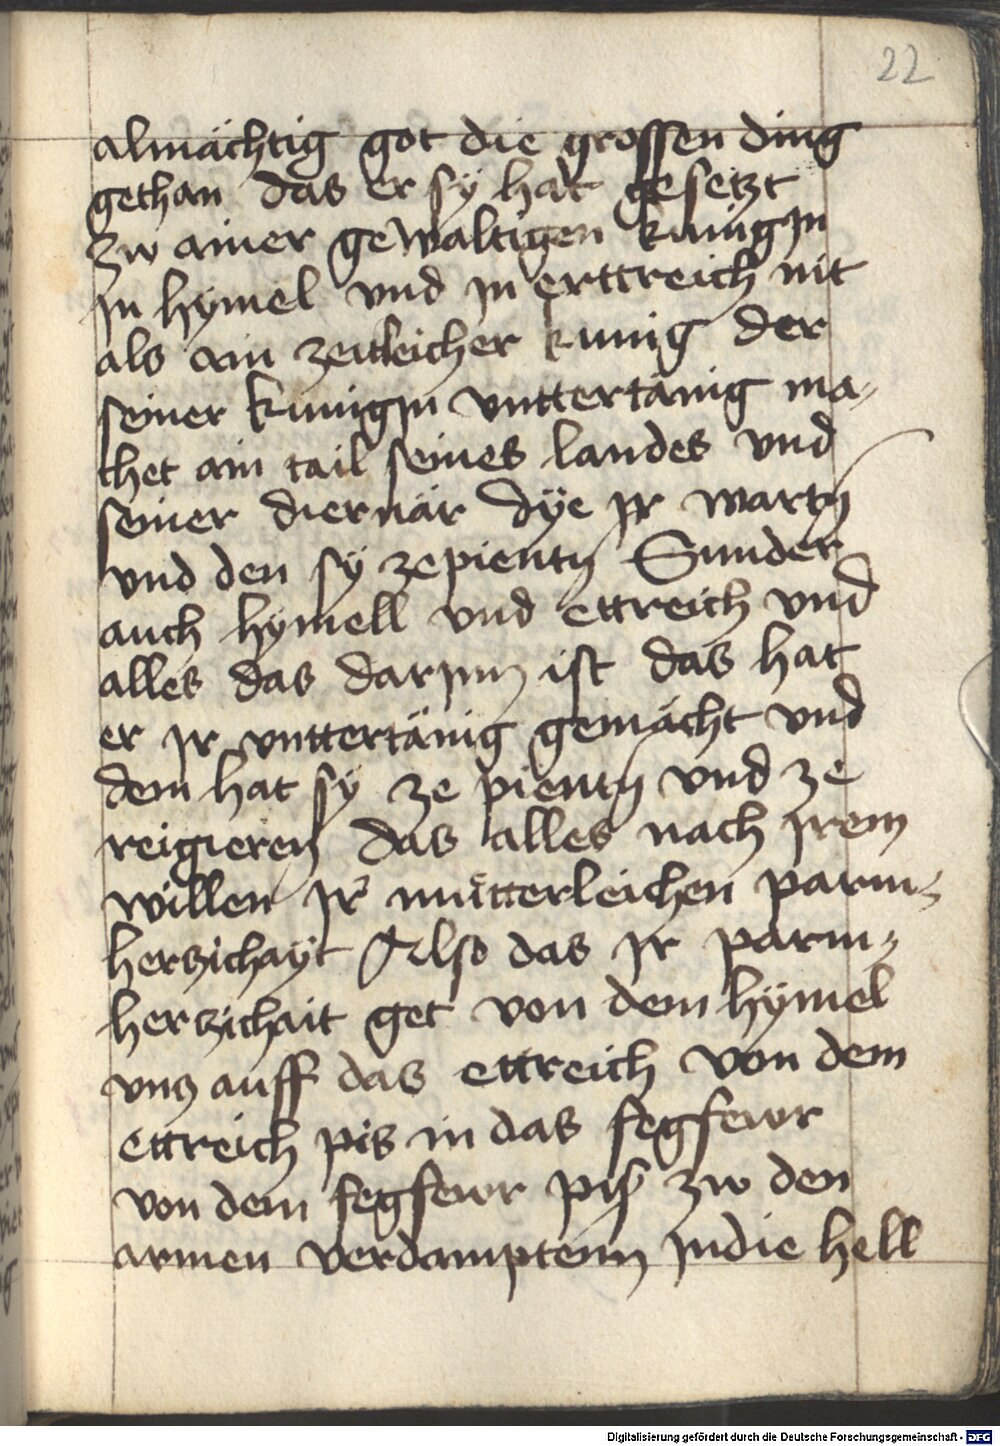 22
almächtig got die grossen ding
gethan das er sÿ hat gesetzt
zw ainer gewaltigen kunigin
jn hÿmel vnd jn erttreich nit
als ain zeitleicher kunig der
seiner kunigin vnttertänig ma-
chet ain tail seines landes vnd
seiner diernär dÿe jr wartn
vnd den sÿ zepientn Sunder
auch hÿmell vnd ettreich vnd
alles das darjnn ist das hat
er jr vnttertänig gemächt vnd
dem hat sÿ ze pientn vnd ze
reigieren das alles nach jrem
willen jr mütterleichen parm-
herzichaÿt Also das jr parm-
herzichait get von dem hÿmel
vnz auff das ettreich von dem
ettreich pis in das fegfewr
von dem fegfewr pis zw den
armen verdamptenn jndie hell
Digitalisierung gefördert durch die Deutsche Forschungsgemeinschaft - DFG